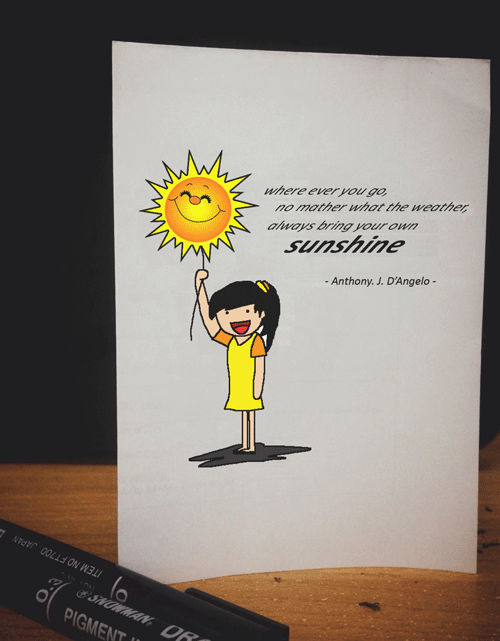 where ever you go,
no mather what the weather,
always bring your own
sunshine
- Anthony. J. D'Angelo -
ITEM NO.F7700 JAPAN
SNOWMAN
PIGMENT